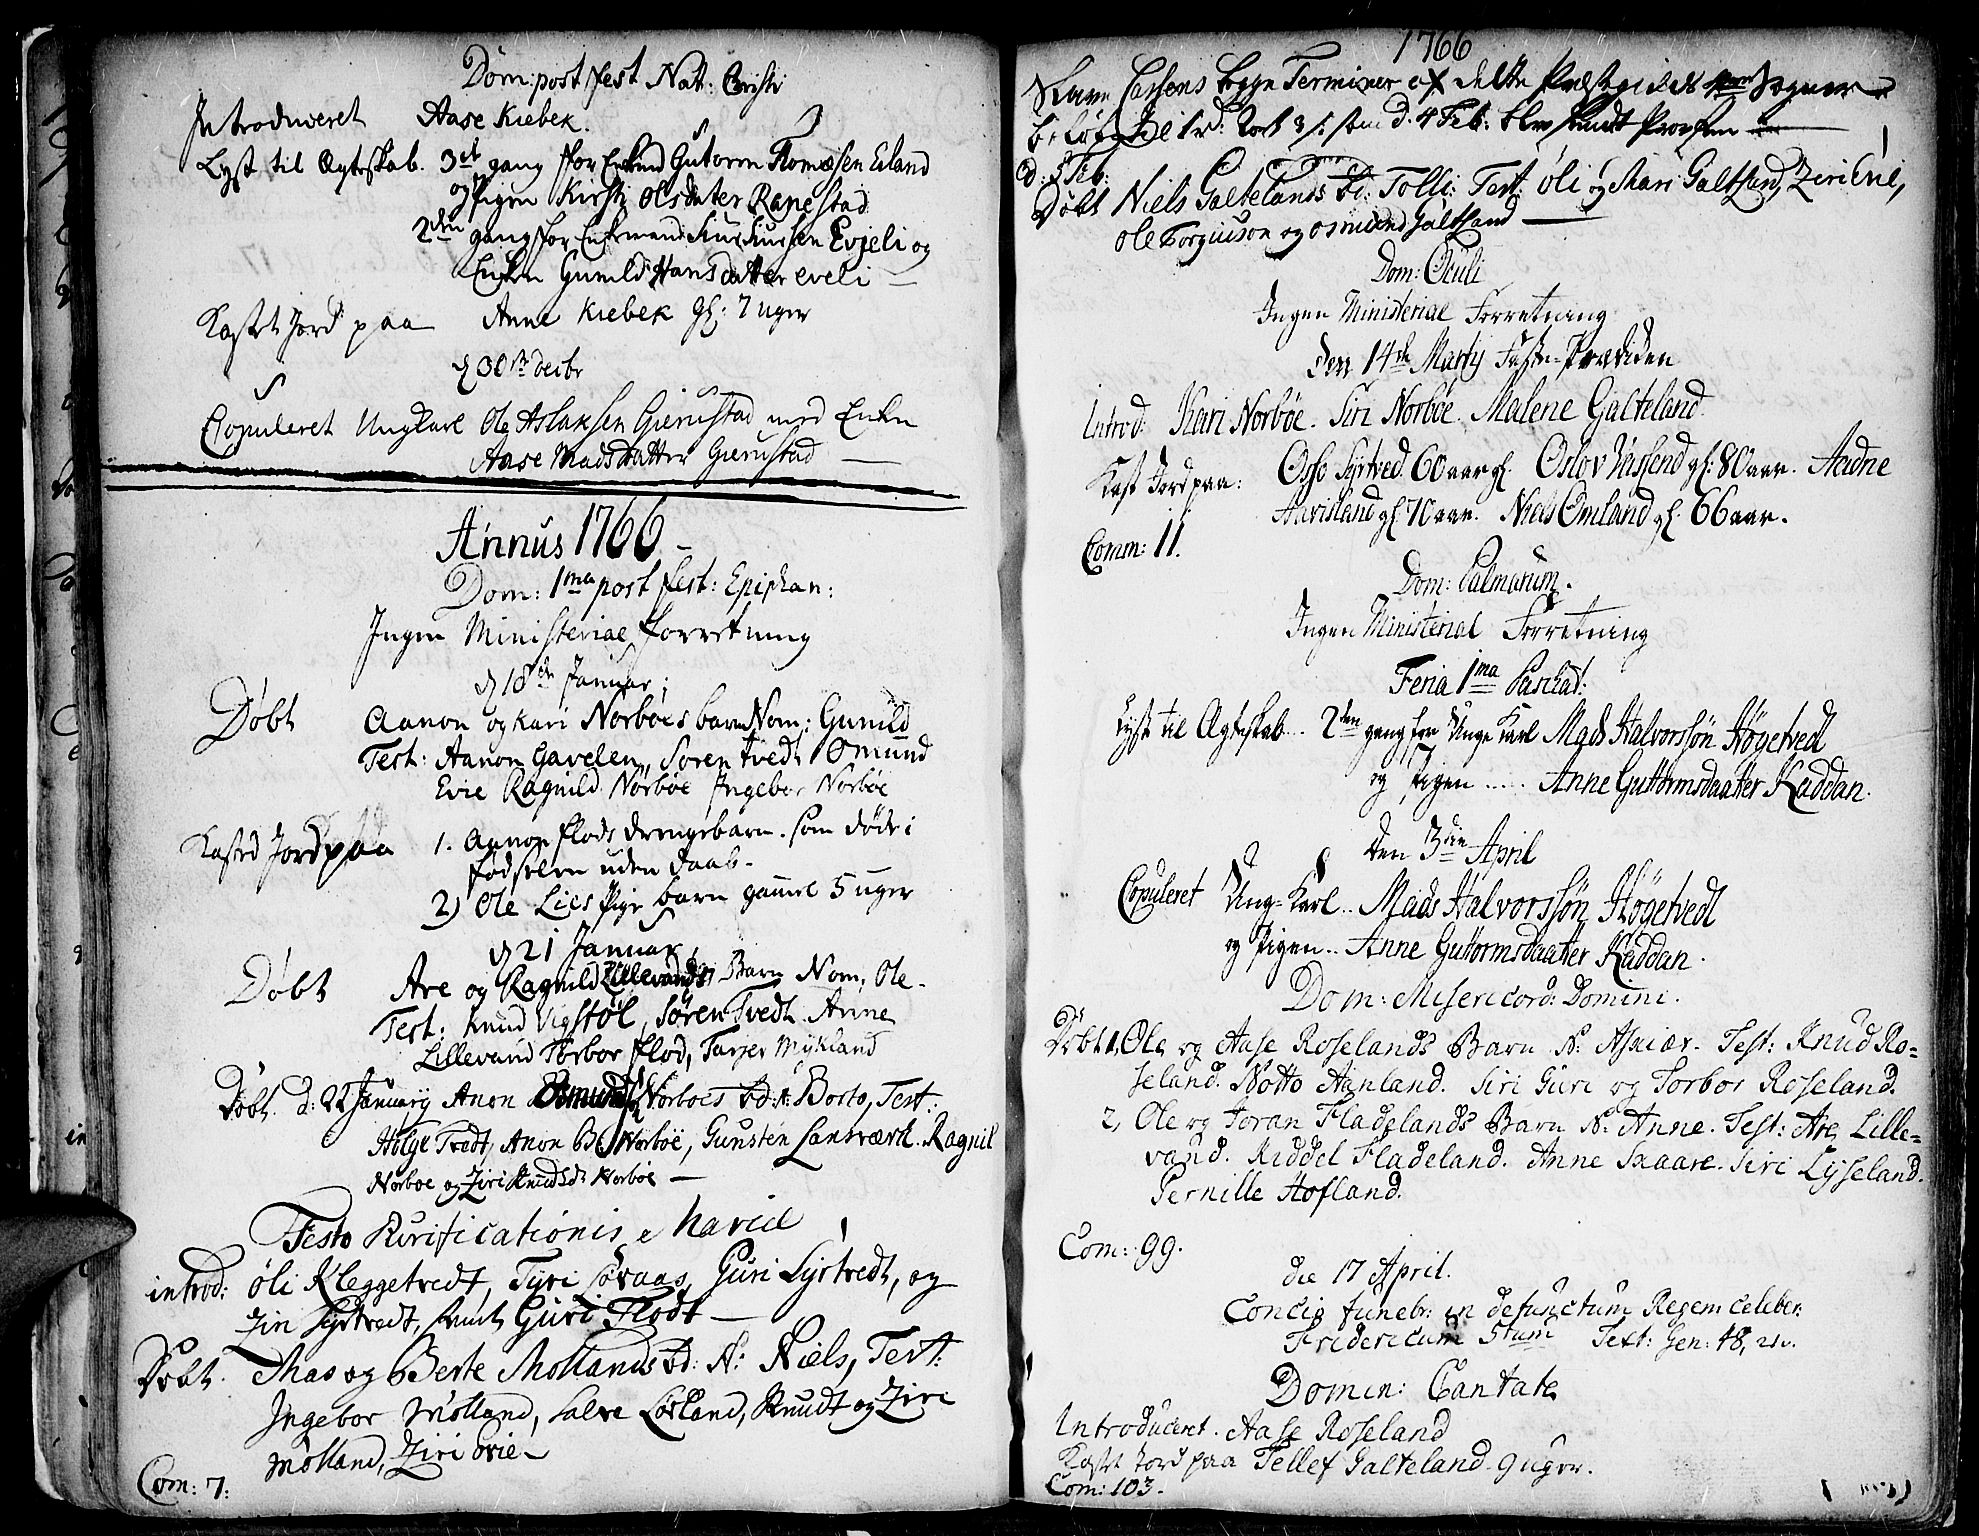 Dom: post fest Nat: Christi
Introduceret Aase Kiebek.
Lyst til Ægteskab. 3de gang for Enkemd Gutorm Thomæsen Eeland
og Pigen Kirsti Olsdater Ranestad
2den gang for Enkemand Evjeli og
Enken Gunild Hansdatter eveli —
Kastet Jord paa Anne Kiebek Gl: 7 uger
d 30te decbr
Copuleret Ungkarl Ole Aslaksen Gierustad med Enken
Aase Madsdatter Gierustad —
Annus 1766 —
Dom: 1ma post fest: Epiphan:
Ingen Ministerial forretning
d 18de Januar;
Døbt Aanon og Kari Norbøes barn Nom: Gunild
Test: Aanon Gavelen, Soren tvedt Omund
Evie Ragnild Norbøe Ingebor Norbøe
Kasted Jord paa 1. Aanon flods drengebarn. som døde i
fødselen uden daab.
2) Ole Lies Pige barn gamel 5 uger
d 21 Januar,
Døbt Are og Ragnild Lillevands Barn Nom: Ole.
Test: Knud Vigstøl, Søren Tvedt Anne
Lillevand Torbor flod, Tarjer Mykland
Døbt. d: 22 January Anon Norboes bd: N: Borto, Test:
Helge Tvedt, Anon Norböe, Gunsten Lansværk. Ragnil
Norboe og Ziri Knudsdr Norböe —
Festo Purificationis Mariæ
introd: Öli Kleggetvedt, Tyri Lövaas, Guri Syrtvedt, og
Ziri Syrtvedt, samt Guri Flodt —
Døbt. Mas og Berte Mollands bd: N: Niels, Test:
Ingebor Mölland, Salve Lösland, Knudt og Ziri
Mölland, Ziri Ovie.
Com: 7.
1766
Terminer af dette Præstegields Sogner
d. 4 Feb: blev sendt Provsten
d: 5 Feb:
Døbt Niels Galtelands bd: Tolli: Test: Öli og Mari Galteland, Ziri Evie,
Ole Torgiuson og Osmund Galteland —
Dom: Oculi
Ingen Ministerial Forretning
den 14de Martij Faste-Prædiken
Introd: Kari Norböe. Siri Norböe. Malene Galteland.
Kast Jord paa: Osso Syrtved. 60 aar gl. Oslov Usland gl: 80 aar. Aadne
Aavesland gl. 70 aar. Niels Omland gl. 66 aar.
Comm: 11.
Dom: Palmarum.
Ingen Ministerial Forretning
Feria 1ma Paschat:
Lyst til Ægteskab... 2den gang for Unge Karl Mads Halvorssøn Høgetvedt
og Pigen ..... Anne Guttormsdaatter Kaddan.
Den 3die April
Copuleret Ung=Karl.. Mads Halvorssøn Høgetvedt
og Pigen.. Anne Guttormsdaatter Kaddan.
Dom: Misericord: Domini.
Døbt 1, Ole og Aase Roselands Barn N: Asuier. Test: Knud Ro=
seland. Notto Aanland. Siri Guri og Torbor Roseland.
2, Ole og Joran Fladelands Barn N: Anne. Test: Are Lille=
vand. Riddel Fladeland. Anne Skaare. Siri Lysseland.
Pernille Hofland.
Com: 99.
die 17 April.
Concio funebr: in defunctum Regem celeber:
Fridericum 5tum Text: Gen: 48, 21.
Domin: Cantate
Introduceret. Aase Roseland
Kastet Jord paa Tellef Galteland. 9 uger.
Com: 103.